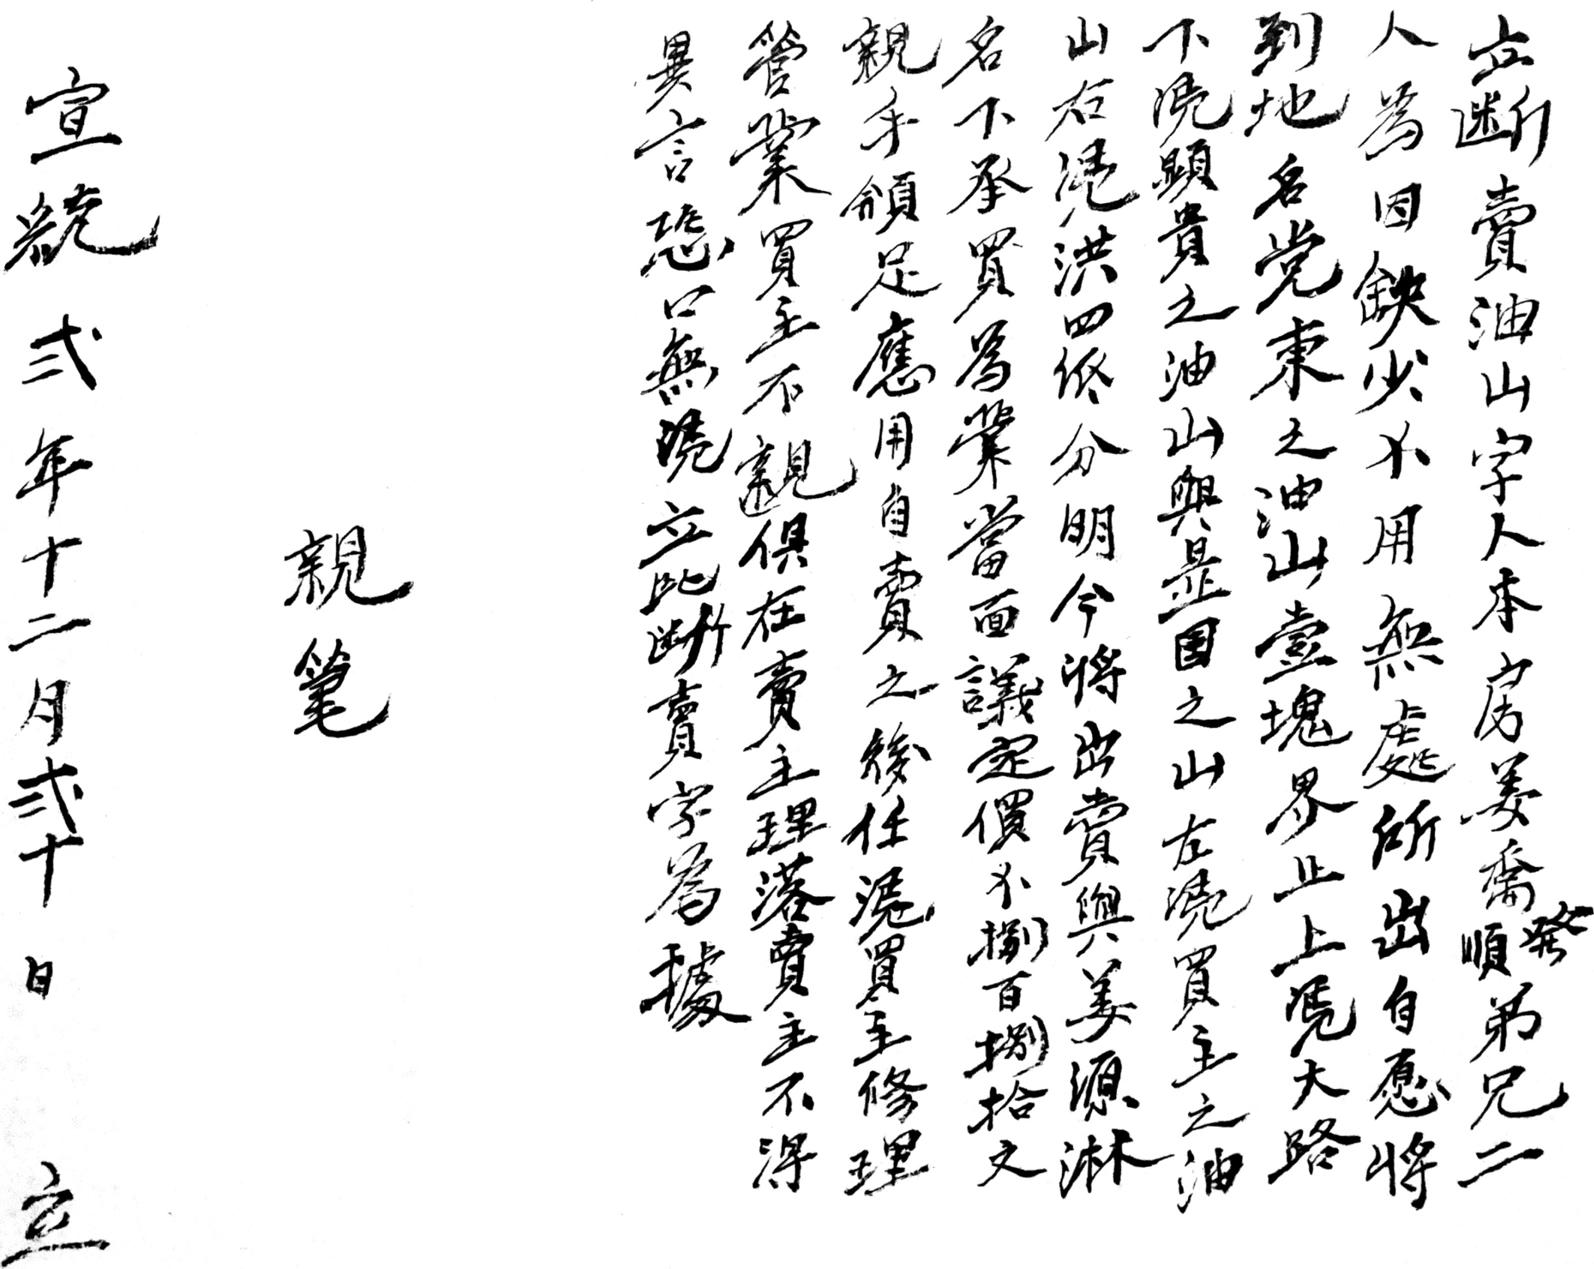 立斷賣油山字人本房姜喬發順弟兄二
人為因缺少不用無處所出自愿將
到地名党東之油山壹塊界止上凴大路
下凴顯貴之油山與显国之山左凴買主之油
山右凴洪四位分明今將出賣與姜源淋
名下承買為業當面議定價不捌百捌拾文
親手領足應用自賣之後任凴買主修理
管業買主不親俱在賣主理落賣主不得
異言恐口無凴立此斷賣字為據
親笔
宣統弍年十二月弍十日 立